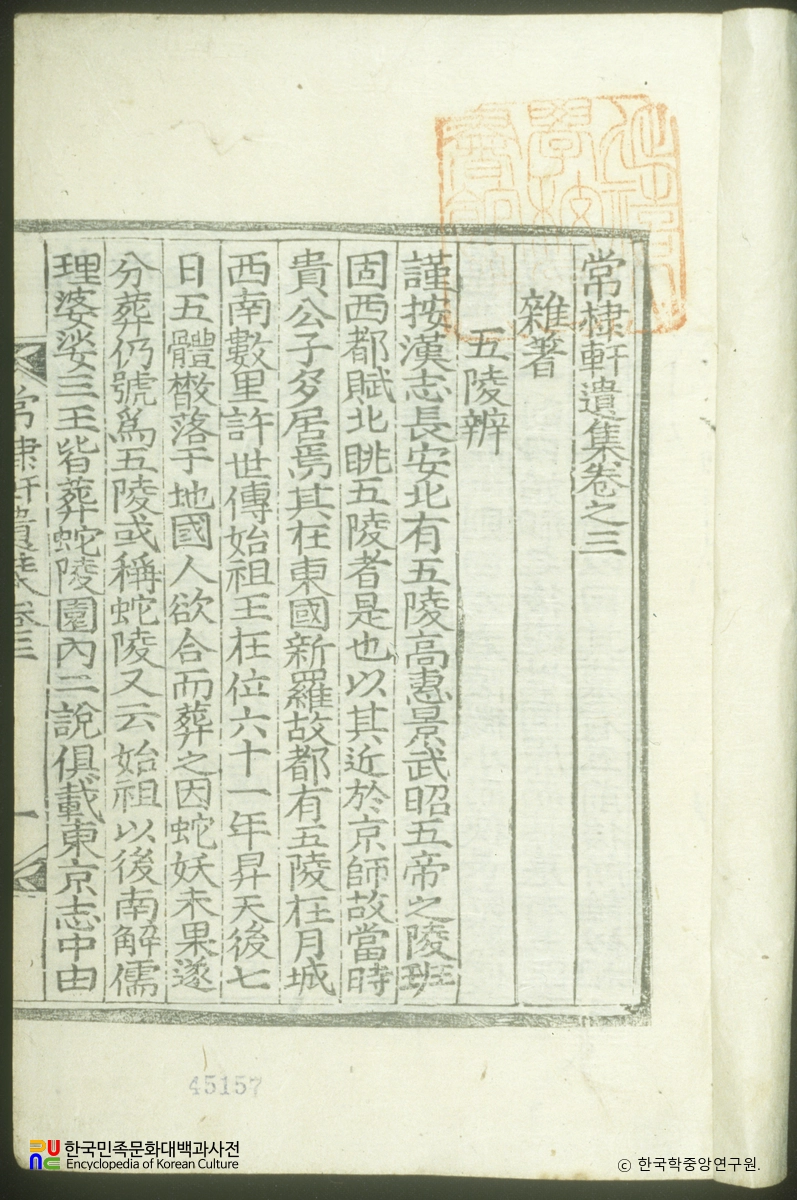 常棣軒遺集卷之三
雜著
五陵辨
謹按漢志長安北有五陵高惠景武昭五帝之陵班
固西都賦北眺五陵者是也以其近於京師故當時
貴公子多居焉其在東國新羅故都有五陵在月城
西南數里許世傳始祖王在位六十一年昇天後七
日五體散落于地國人欲合而葬之因蛇妖未果遂
分葬仍號爲五陵或稱蛇陵又云始祖以後南解儒
理婆娑三王皆葬蛇陵園內二說俱載東京志中由
常棣軒遺集 卷三
一
45157
한국민족문화대백과사전
Encyclopedia of Korean Culture
ⓒ 한국학중앙연구원.